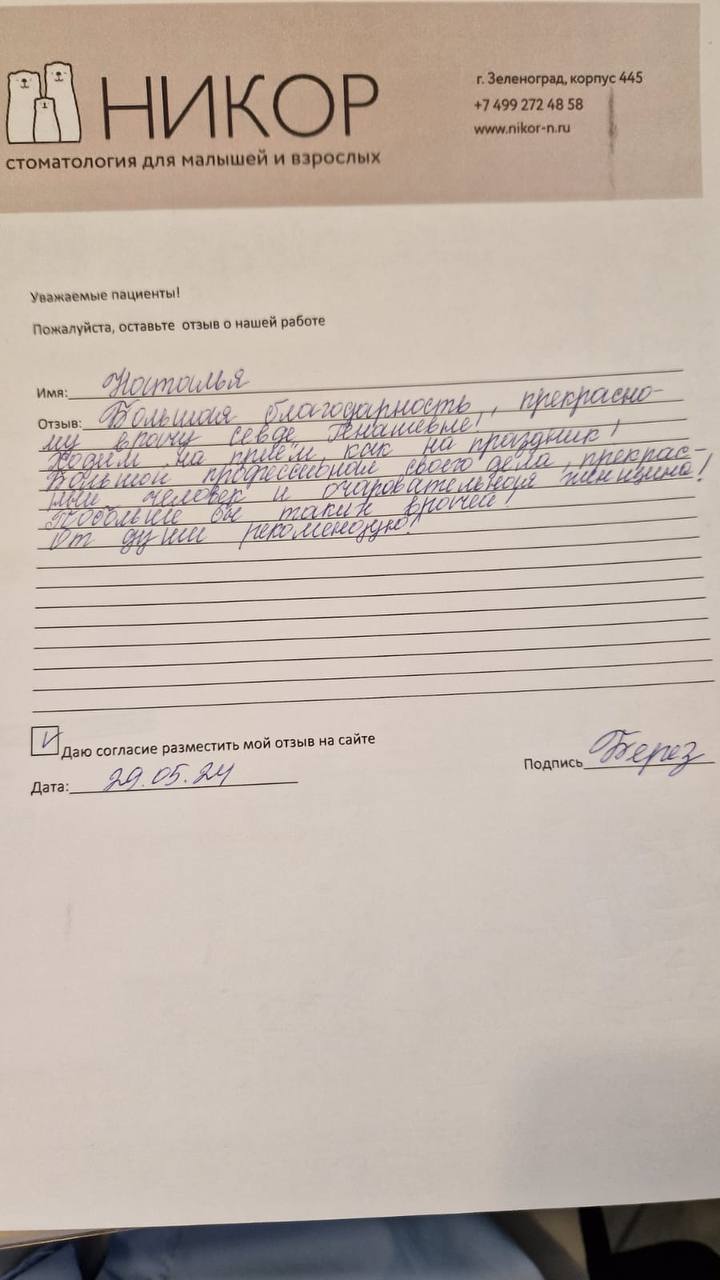 НИКОР
стоматология для малышей и взрослых
г. Зеленоград, корпус 445
+7 499 272 48 58
www.nikor-n.ru
Уважаемые пациенты!
Пожалуйста, оставьте отзыв о нашей работе
Имя: Наталья
Отзыв: Большая благодарность, прекрасно-
му врачу Севде Енашевне!
Ходим на приём, как на праздник!
Большой профессионал своего дела, прекрас-
ный человек и очаровательная женщина!
Побольше бы таких врачей!
От души рекомендую!
V Даю согласие разместить мой отзыв на сайте
Дата: 29.05.24
Подпись Берез